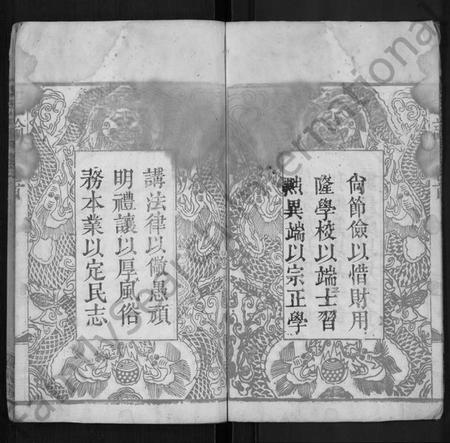 尙節儉以惜財用
隆學校以端士習
黜異端以宗正學
講法律以儆愚頑
明禮讓以厚風俗
務本業以定民志